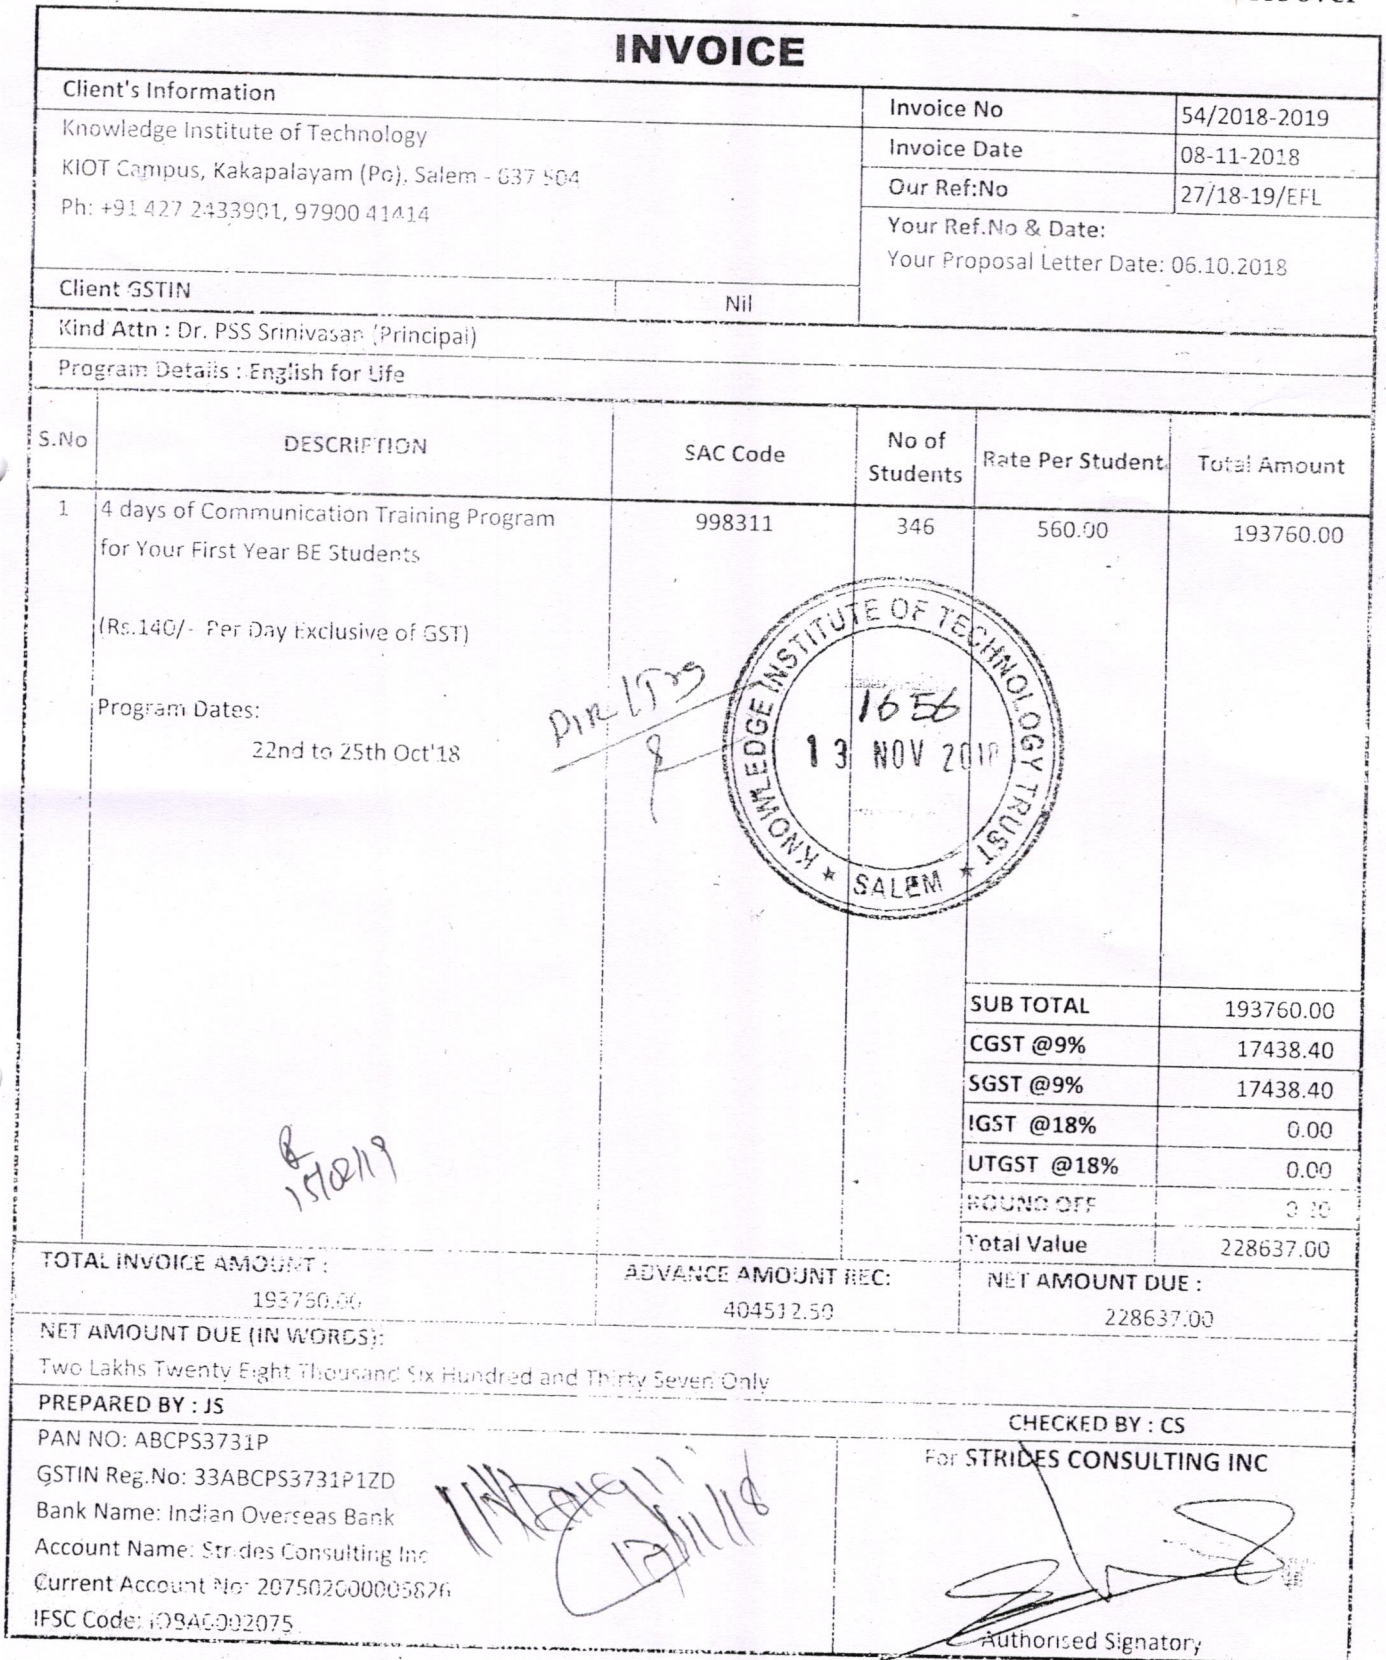 INVOICE
Client's Information
Knowledge Institute of Technology
KIOT Campus, Kakapalayam (Po), Salem - 637 504
Ph: +91 427 2433901, 97900 41414
Invoice No 54/2018-2019
Invoice Date 08-11-2018
Our Ref:No 27/18-19/EFL
Your Ref.No & Date:
Your Proposal Letter Date: 06.10.2018
Client GSTIN Nil
Kind Attn : Dr. PSS Srinivasan (Principal)
Program Details : English for Life
S.No DESCRIPTION SAC Code No of Students Rate Per Student Total Amount
1 4 days of Communication Training Program 998311 346 560.00 193760.00
for Your First Year BE Students
(Rs.140/- Per Day Exclusive of GST)
Program Dates:
22nd to 25th Oct'18
KNOWLEDGE INSTITUTE OF TECHNOLOGY TRUST
1656
13 NOV 2018
* SALEM *
SUB TOTAL 193760.00
CGST @9% 17438.40
SGST @9% 17438.40
IGST @18% 0.00
UTGST @18% 0.00
ROUND OFF 0.20
Total Value 228637.00
15/02/19
TOTAL INVOICE AMOUNT : ADVANCE AMOUNT REC: NET AMOUNT DUE :
193760.00 404512.50 228637.00
NET AMOUNT DUE (IN WORDS):
Two Lakhs Twenty Eight Thousand Six Hundred and Thirty Seven Only
PREPARED BY : JS
CHECKED BY : CS
PAN NO: ABCPS3731P
GSTIN Reg.No: 33ABCPS3731P1ZD
Bank Name: Indian Overseas Bank
Account Name: Strides Consulting Inc
Current Account No: 207502000005826
IFSC Code: IOBA0002075
For STRIDES CONSULTING INC
Authorised Signatory